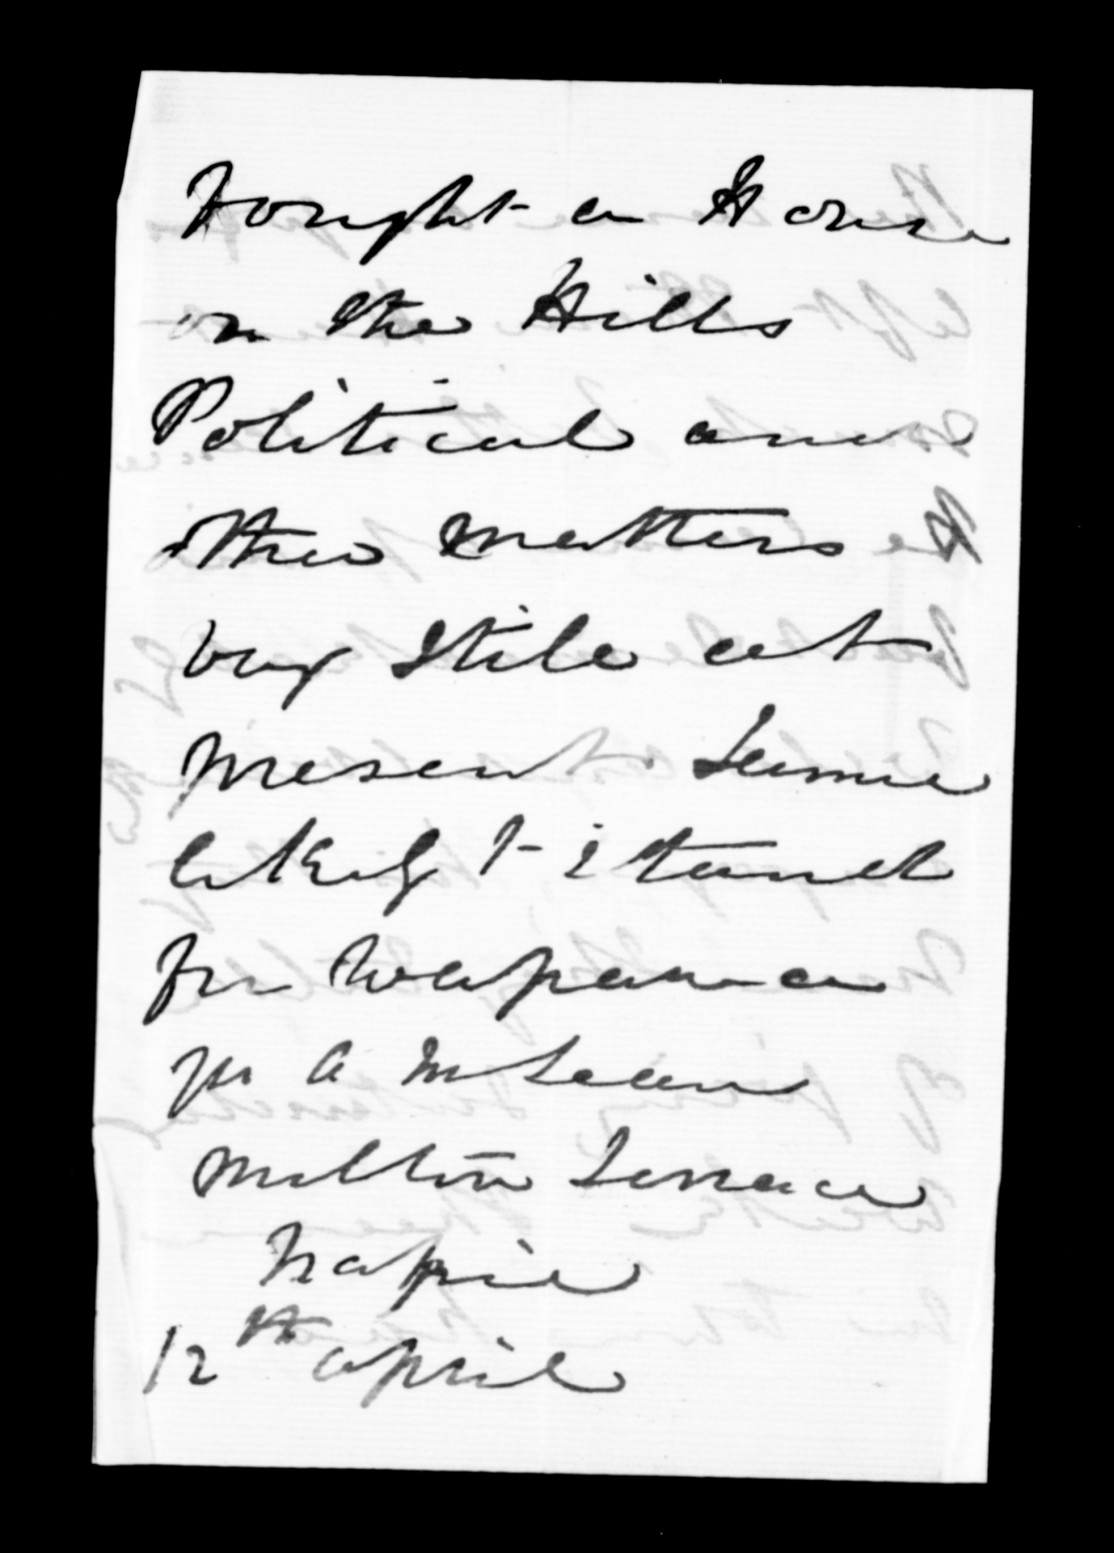 bought a House
on the Hills
Political and
other matters
very Still at
present
likely to stand
for Waipawa
yrs A McLean
Milton Terrace
Napier
12th April